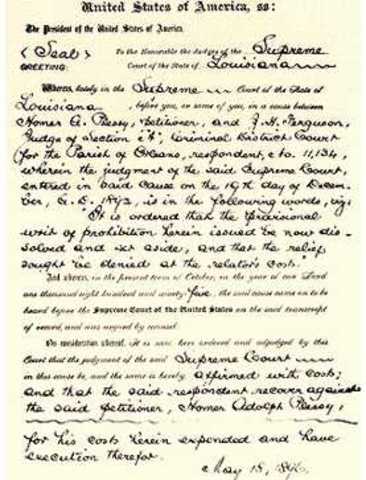 United States of America, ss:
The President of the United States of America,
(Seal) To the Honorable the Judges of the Supreme
GREETING: Court of the State of Louisiana
Whereas, lately in the Supreme Court of the State of
Louisiana, before you, or some of you, in a cause between
Homer A. Plessy, Petitioner, and J. H. Ferguson,
Judge of Section "A", Criminal District Court
for the Parish of Orleans, respondent, No. 11,134,
wherein the judgment of the said Supreme Court,
entered in said cause on the 19th day of Decem-
ber, A.D. 1892, is in the following words, viz:
"It is ordered that the provisional
writ of prohibition herein issued be now dis-
solved and set aside, and that the relief
sought be denied at the relator's costs."
And whereas, in the present term of October, in the year of our Lord
one thousand eight hundred and ninety-five, the said cause came on to be
heard before the Supreme Court of the United States on the said transcript
of record, and was argued by counsel.
On consideration whereof, It is now here ordered and adjudged by this
Court that the judgment of the said Supreme Court
in this cause be, and the same is hereby, affirmed with costs;
and that the said respondent recover against
the said petitioner, Homer Adolph Plessy,
for his costs herein expended and have
execution therefor.
May 18, 1896.